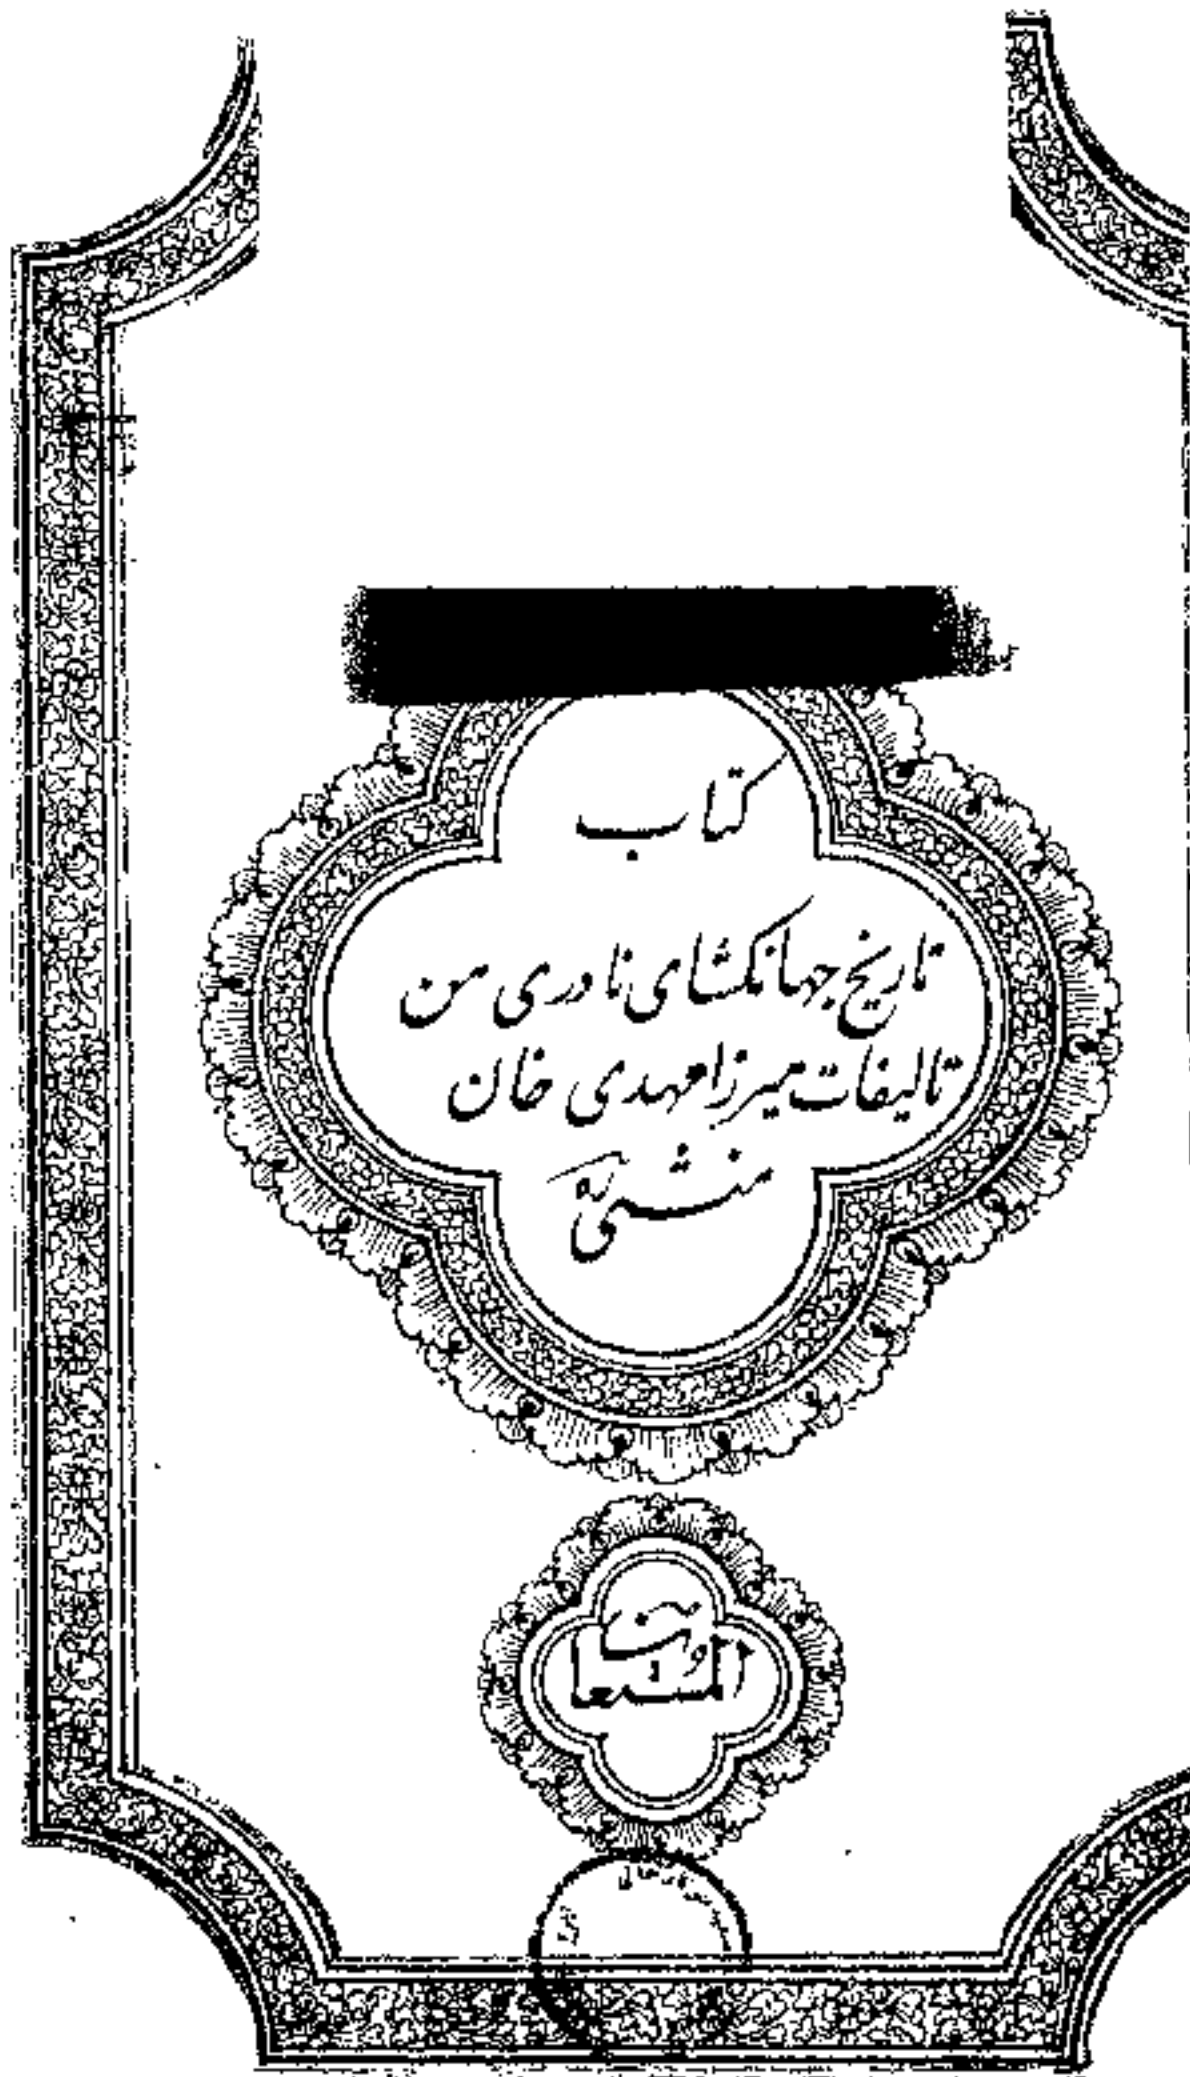 کتاب
تاریخ جهانکشای نادری من
تالیفات میرزا مهدی خان
منشی